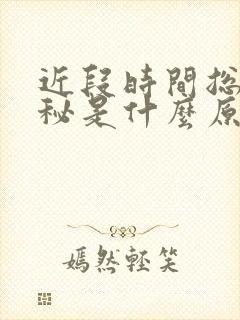 近段時間总
秘是什麼原
嫣然輕笑